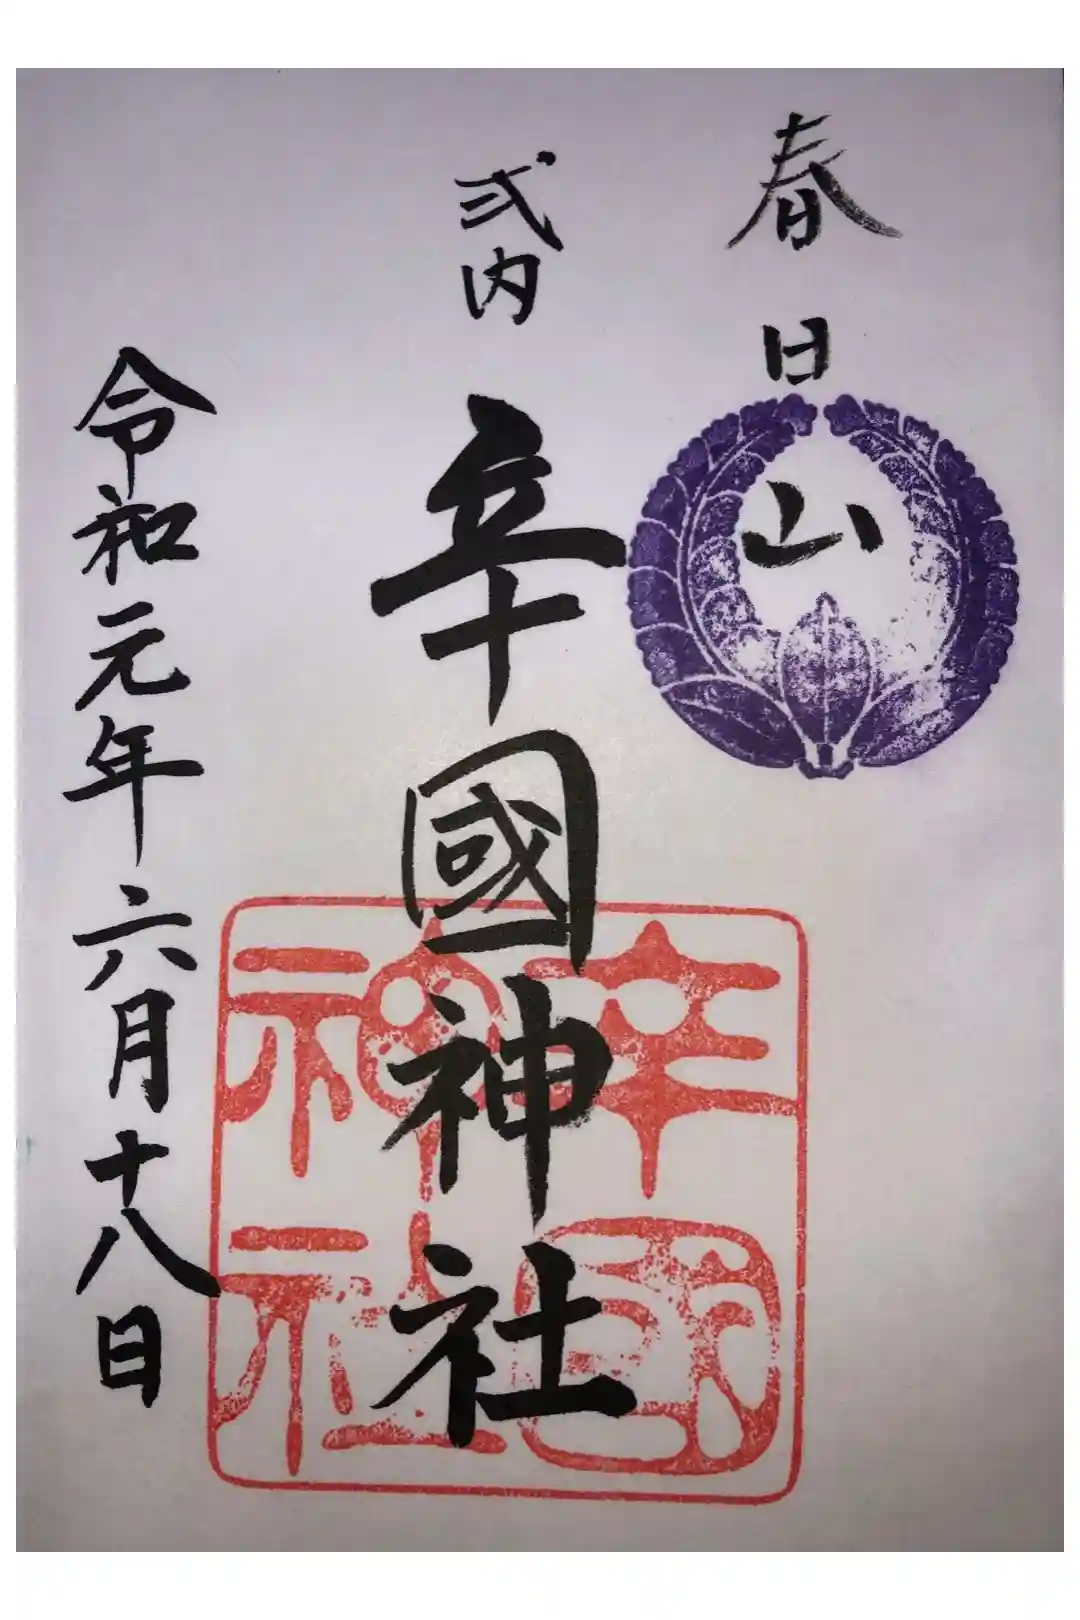 春日山
式内
辛國神社
辛國神社
令和元年六月十八日